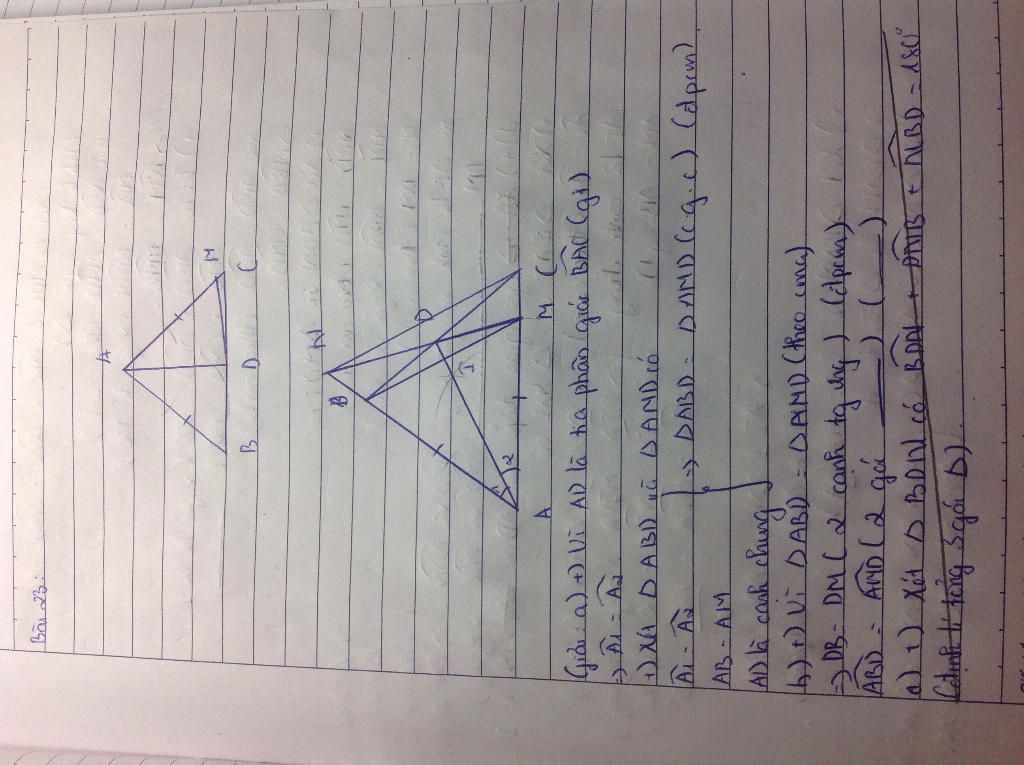 Bài 23:
A
M
B D C
N
B
D
I
1
2
A M C
Giải: a) +) Vì AD là tia phân giác BAC (gt)
=> A1 = A2
+) Xét Δ ABD và Δ AMD có
A1 = A2
AB = AM
AD là cạnh chung
=> Δ ABD = Δ AMD (c.g.c) (đpcm)
b) +) Vì Δ ABD = Δ AMD (theo cma)
=> DB = DM (2 cạnh tg ứng) (đpcm)
ABD = AMD (2 góc
d) +) Xét Δ BDN có BDN + DNB + NBD = 180°
(định lí tổng 3 góc Δ)